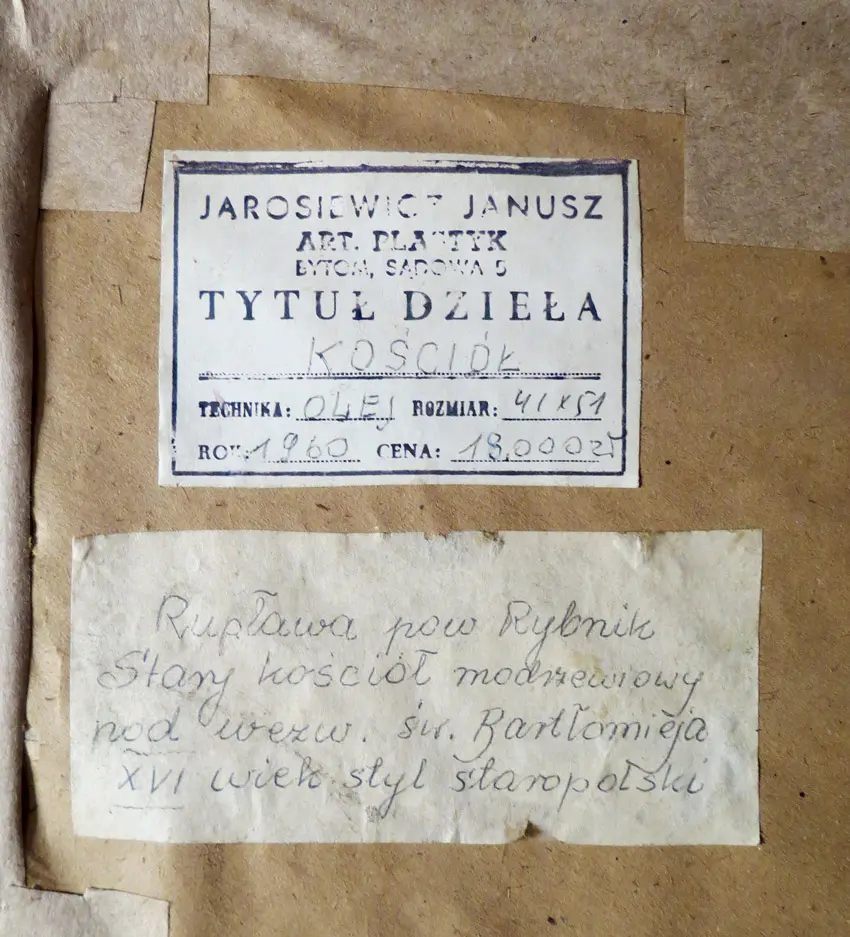 JAROSIEWICZ JANUSZ
ART. PLASTYK
BYTOM, SĄDOWA 5
TYTUŁ DZIEŁA
KOŚCIÓŁ
TECHNIKA: OLEJ ROZMIAR: 41x51
ROK: 1960 CENA: 18.000 zł
Rupława pow Rybnik
Stary kościół modrzewiowy
pod wezw. św. Bartłomieja
XVI wiek styl staropolski